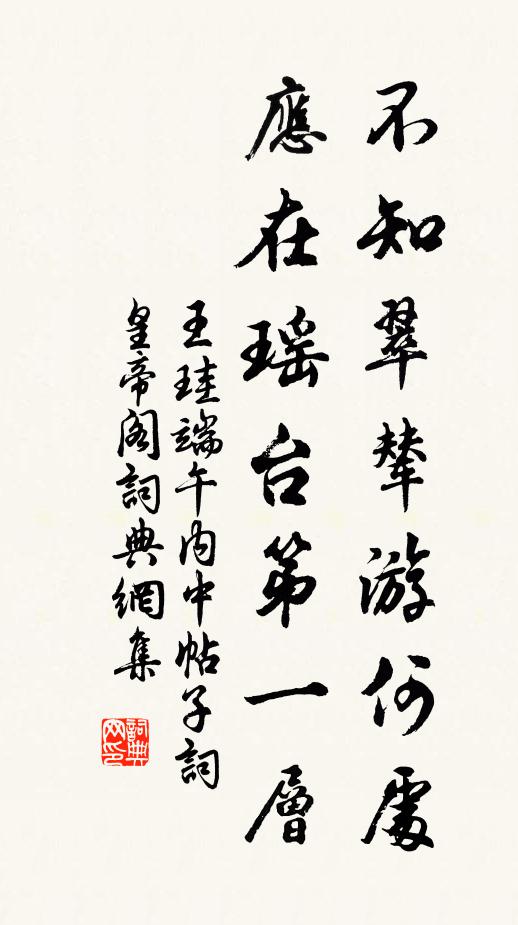 不知翠輦游何處
應在瑶台第一層
王珪端午内中帖子詞
皇帝阁詞典網集
詞典
网印